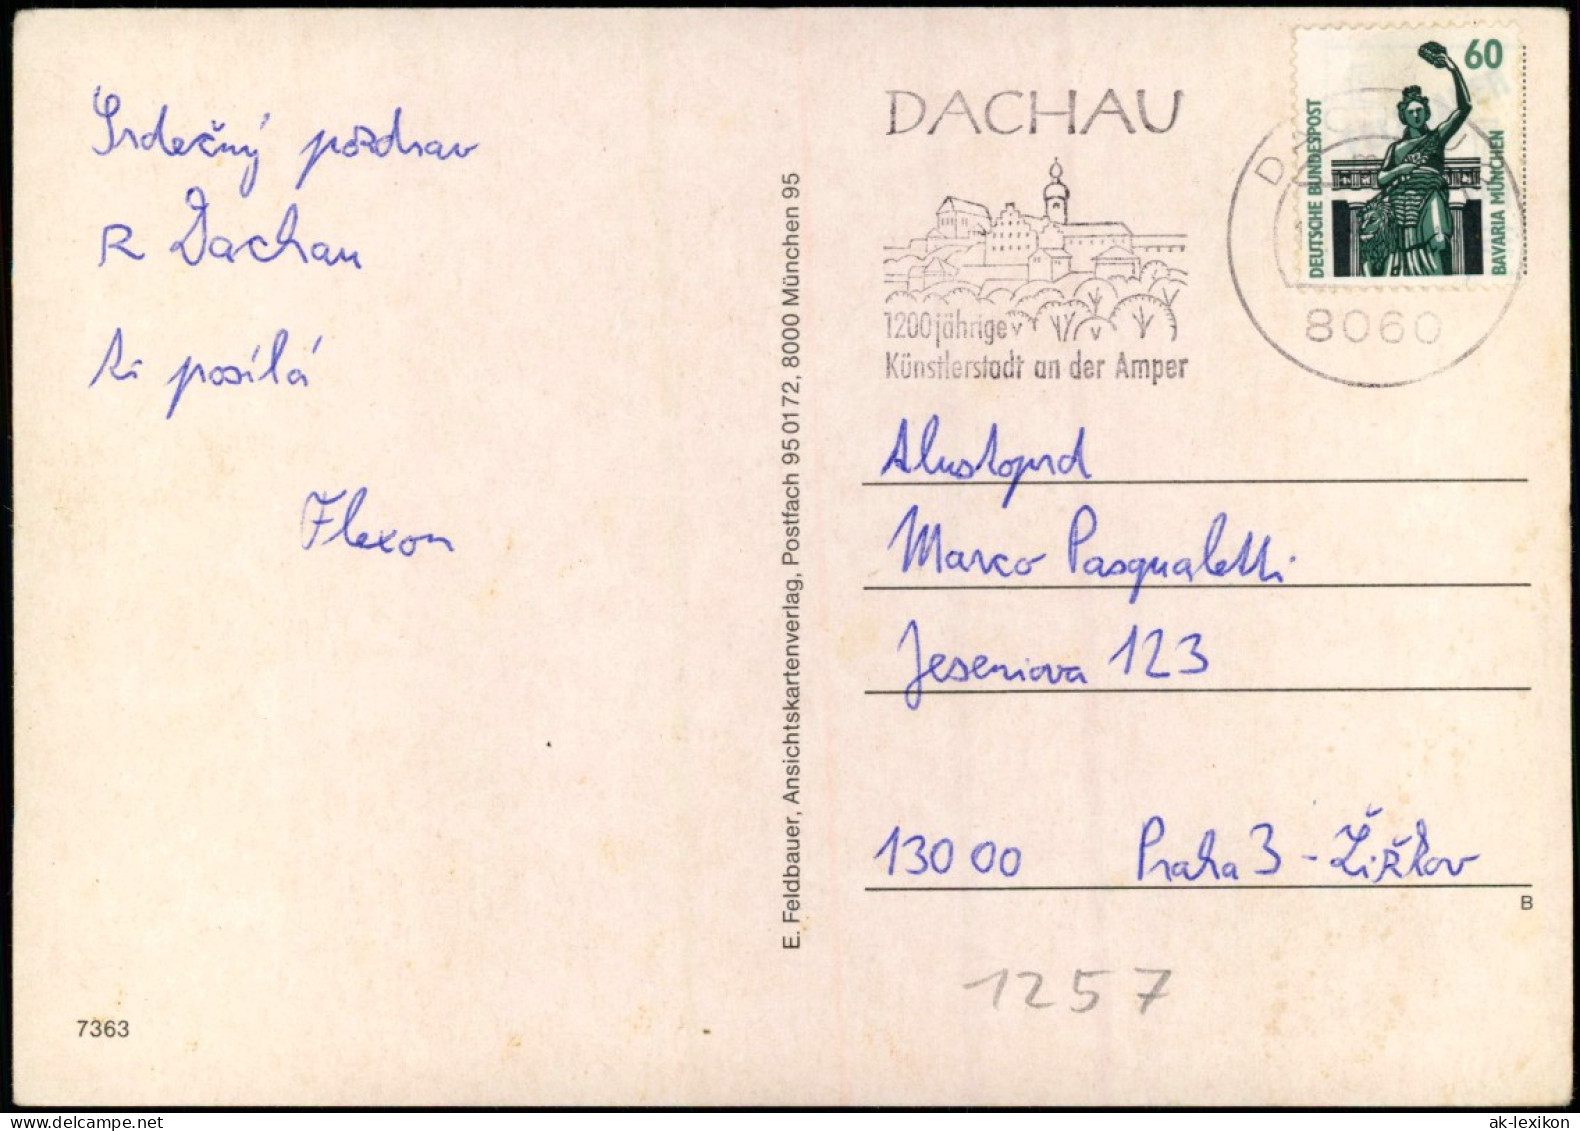 Srdečný pozdrav
z Dachau
ti posílá
Flexon
7363
E. Feldbauer, Ansichtskartenverlag, Postfach 95 01 72, 8000 München 95
DACHAU
1200jährige
Künstlerstadt an der Amper
8060
60
DEUTSCHE BUNDESPOST
BAVARIA MÜNCHEN
Marco Pasqualetti
Jeseniova 123
130 00 Praha 3 - Žižkov
B
1257
ak-lexikon.com